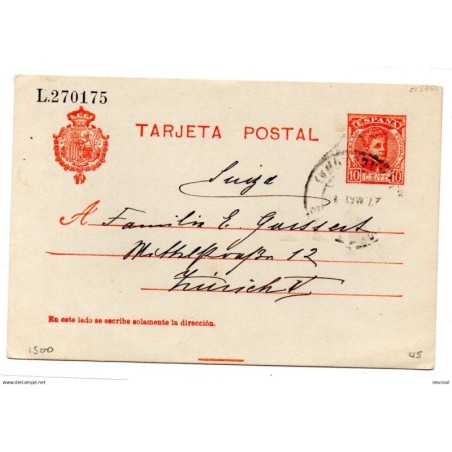 L.270175
TARJETA POSTAL
ESPAÑA
10 CENT. 10
Suiza
A Familia E. Gossert
Mittelstraße 12
Zürich V
En este lado se escribe solamente la dirección.
1500
45